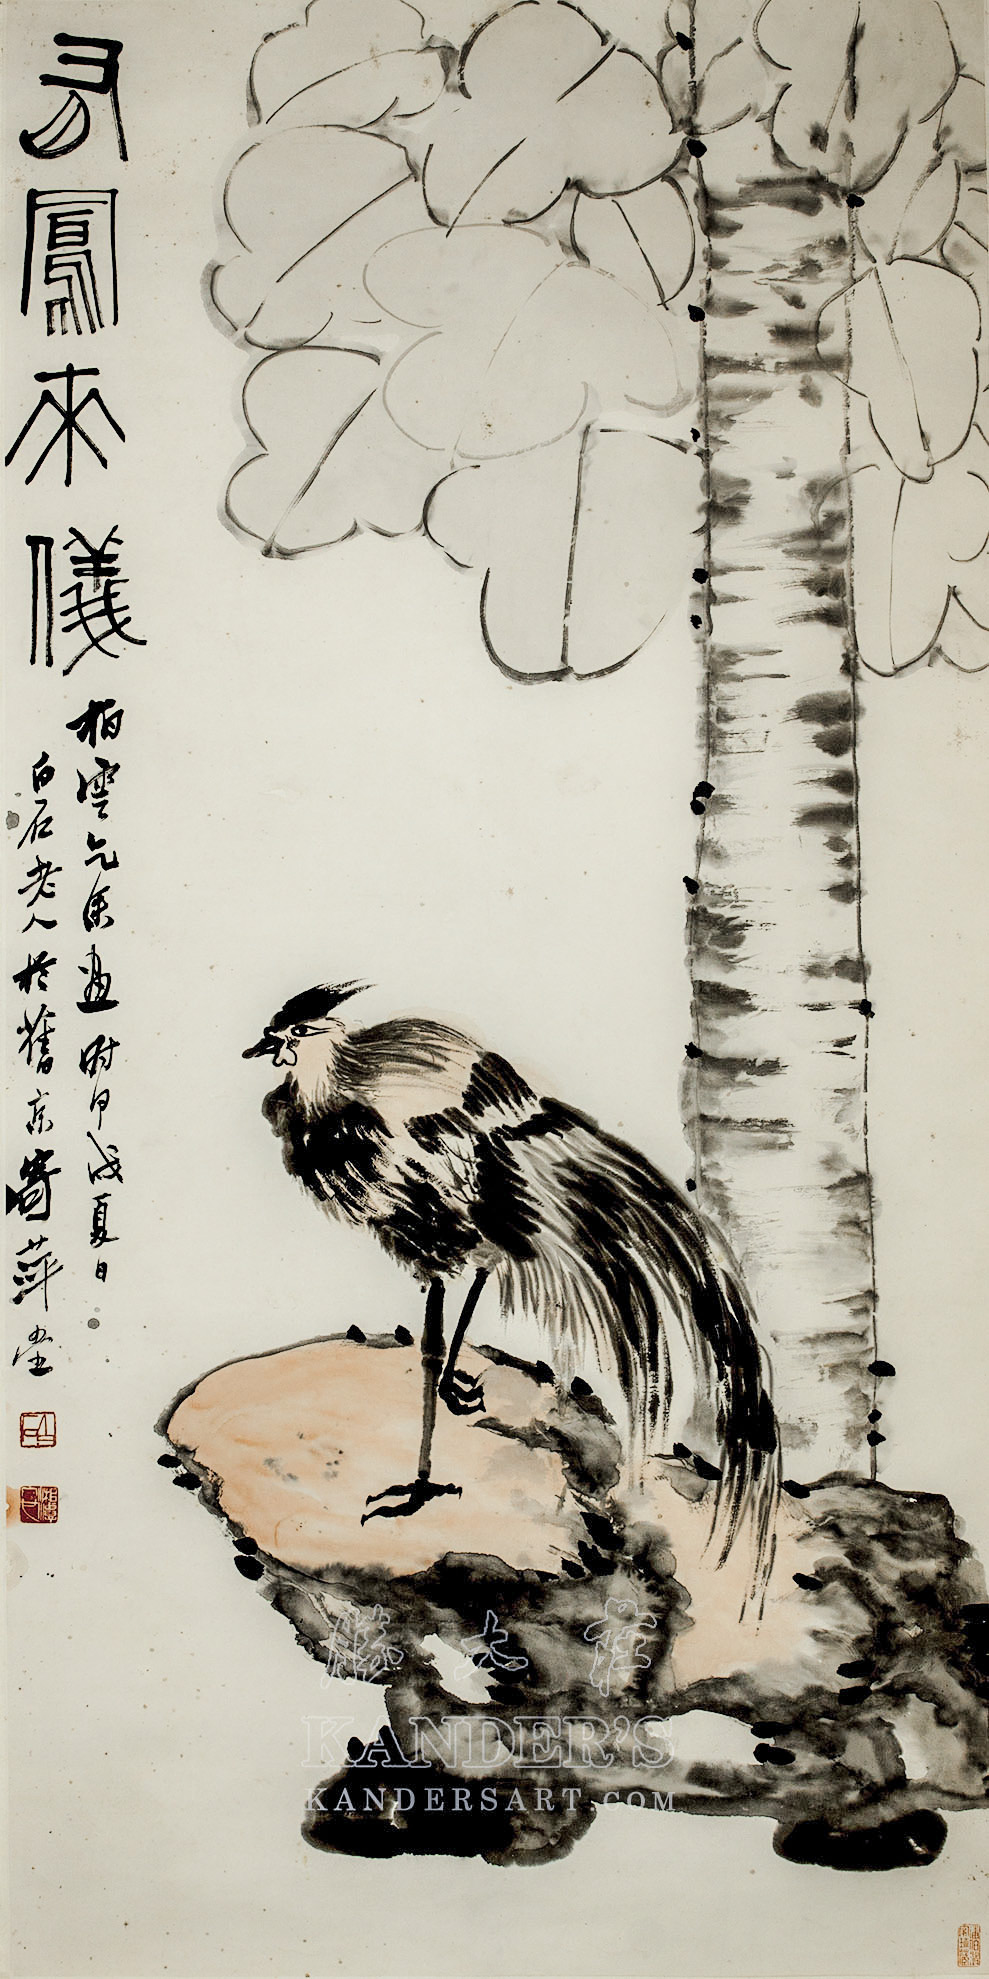 有鳳來儀
柏雲乞余畫時甲戌夏日
白石老人於舊京寄萍堂
勝大莊
KANDER'S
KANDERSART.COM